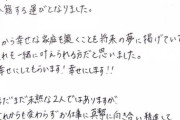 入籍する運びとなりました。
から幸せな家庭を築くことを将来の夢に掲げてい
れも一緒に叶えられる方だと思いました。
幸せにしてもらいます!幸せにします!!
だまだ未熟な2人ではありますが、
これからも変わらずお仕事に真摯に向き合い精進して